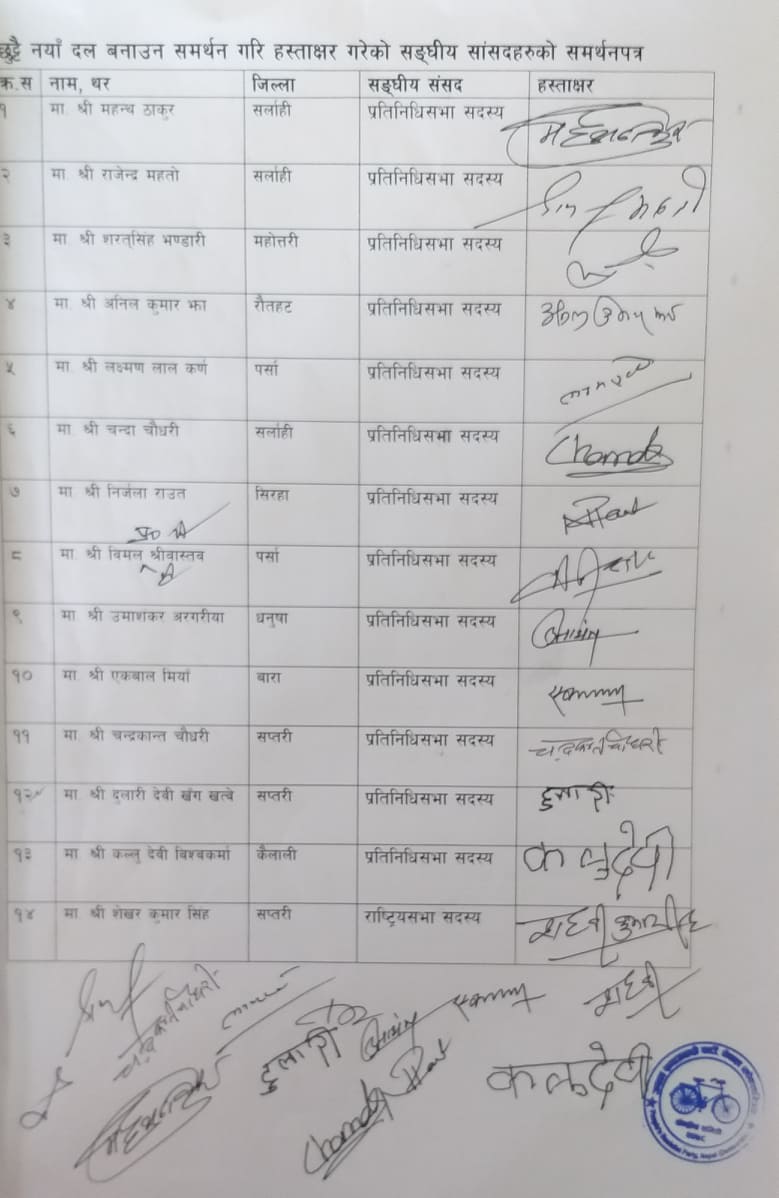 छुट्टै नयाँ दल बनाउन समर्थन गरि हस्ताक्षर गरेको सङ्घीय सांसदहरुको समर्थनपत्र
क.स नाम, थर जिल्ला सङ्घीय संसद हस्ताक्षर
१ मा. श्री महन्थ ठाकुर सर्लाही प्रतिनिधिसभा सदस्य
२ मा. श्री राजेन्द्र महतो सर्लाही प्रतिनिधिसभा सदस्य
३ मा. श्री शरतसिंह भण्डारी महोत्तरी प्रतिनिधिसभा सदस्य
४ मा. श्री अनिल कुमार झा रौतहट प्रतिनिधिसभा सदस्य
५ मा. श्री लक्ष्मण लाल कर्ण पर्सा प्रतिनिधिसभा सदस्य
६ मा. श्री चन्दा चौधरी सर्लाही प्रतिनिधिसभा सदस्य Chanda
७ मा. श्री निर्जला राउत सिरहा प्रतिनिधिसभा सदस्य
८ मा. श्री विमल श्रीवास्तव पर्सा प्रतिनिधिसभा सदस्य
९ मा. श्री उमाशंकर अरगरीया धनुषा प्रतिनिधिसभा सदस्य
१० मा. श्री एकबाल मियाँ बारा प्रतिनिधिसभा सदस्य
११ मा. श्री चन्द्रकान्त चौधरी सप्तरी प्रतिनिधिसभा सदस्य चन्द्रकान्त चौधरी
१२ मा. श्री दुलारी देवी खंग खत्वे सप्तरी प्रतिनिधिसभा सदस्य दुलारी
१३ मा. श्री कल्लु देवी विश्वकर्मा कैलाली प्रतिनिधिसभा सदस्य कलुदेवी
१४ मा. श्री शेखर कुमार सिंह सप्तरी राष्ट्रियसभा सदस्य
चन्द्रकान्त चौधरी
दुलारी
Chanda
कलुदेवी